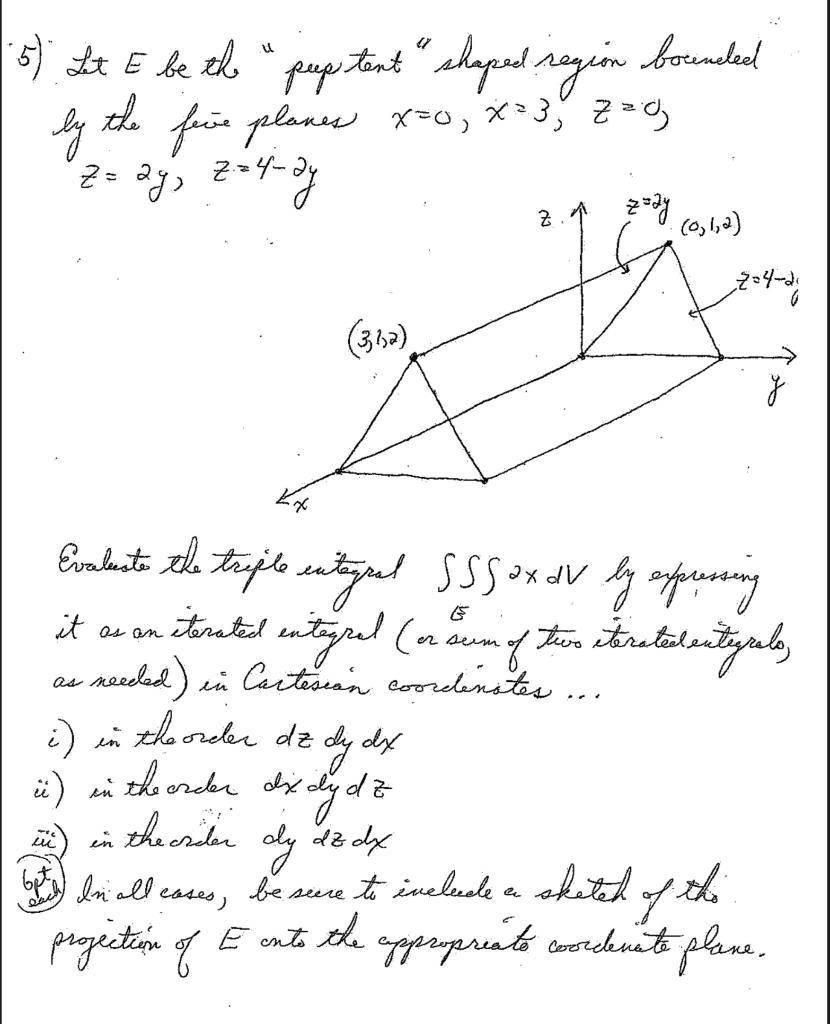 5) Let E be the "pup tent" shaped region bounded
by the five planes x=0, x=3, z=0,
z=2y, z=4-2y
z
z=2y
(0,1,2)
z=4-2y
(3,1,2)
y
x
Evaluate the triple integral ∫∫∫ 2x dV by expressing
E
it as an iterated integral (or sum of two iterated integrals,
as needed) in Cartesian coordinates ...
i) in the order dz dy dx
ii) in the order dx dy dz
iii) in the order dy dz dx
6pt each
In all cases, be sure to include a sketch of the
projection of E onto the appropriate coordinate plane.